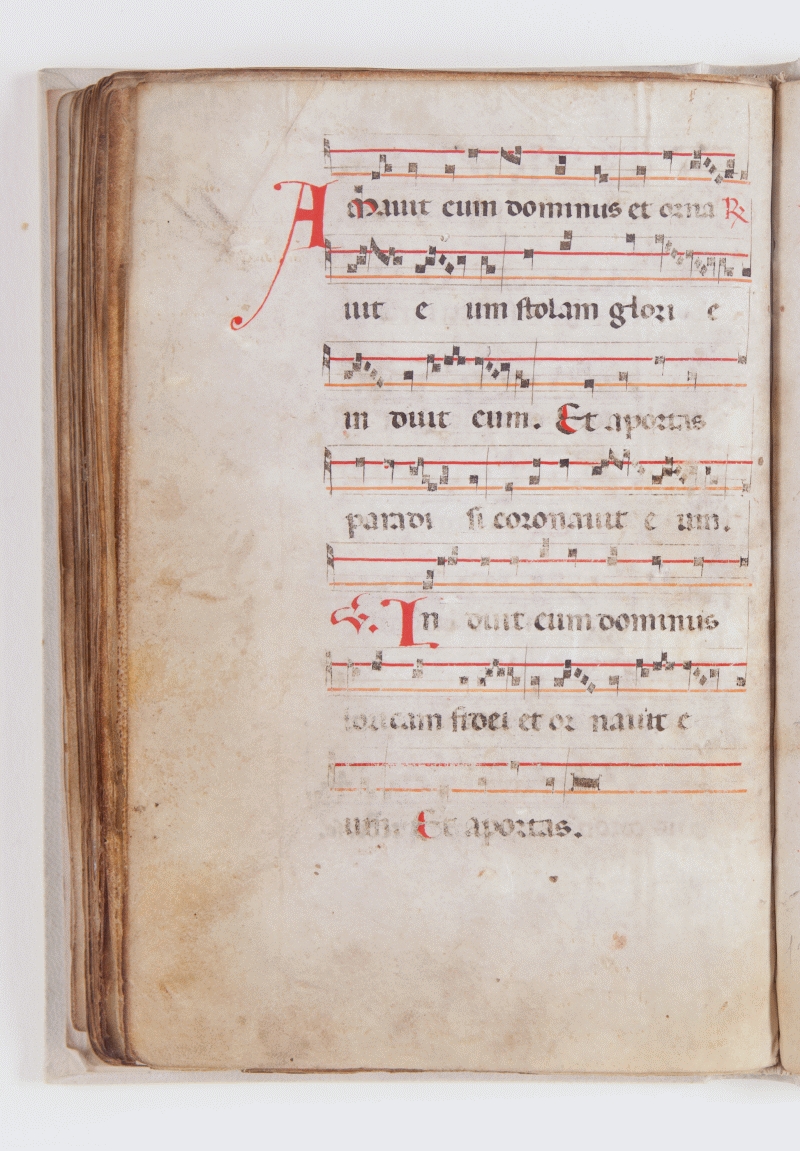 Amauit eum dominus et orna ℟
uit e um stolam glori e
in duit eum. Et aportas
paradi si coronauit e um.
℣. In duit eum dominus
loricam fidei et or nauit e
um. Et aportas.